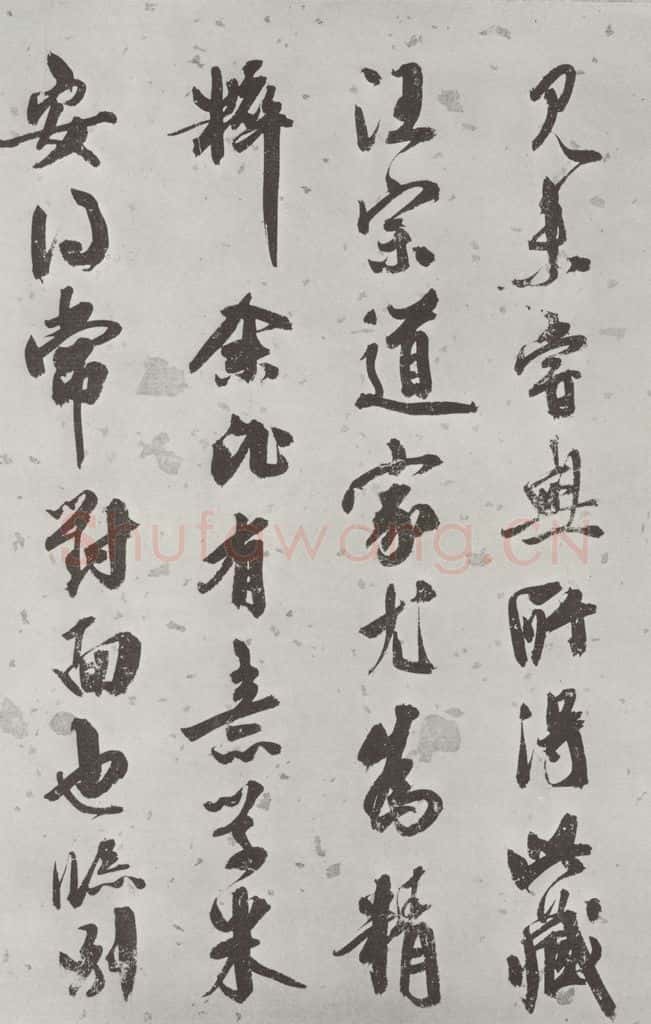 見朱典所得此藏
汪宗道家尤為精
粹余比有學米
安得常對面也臨別
Shufawang.CN